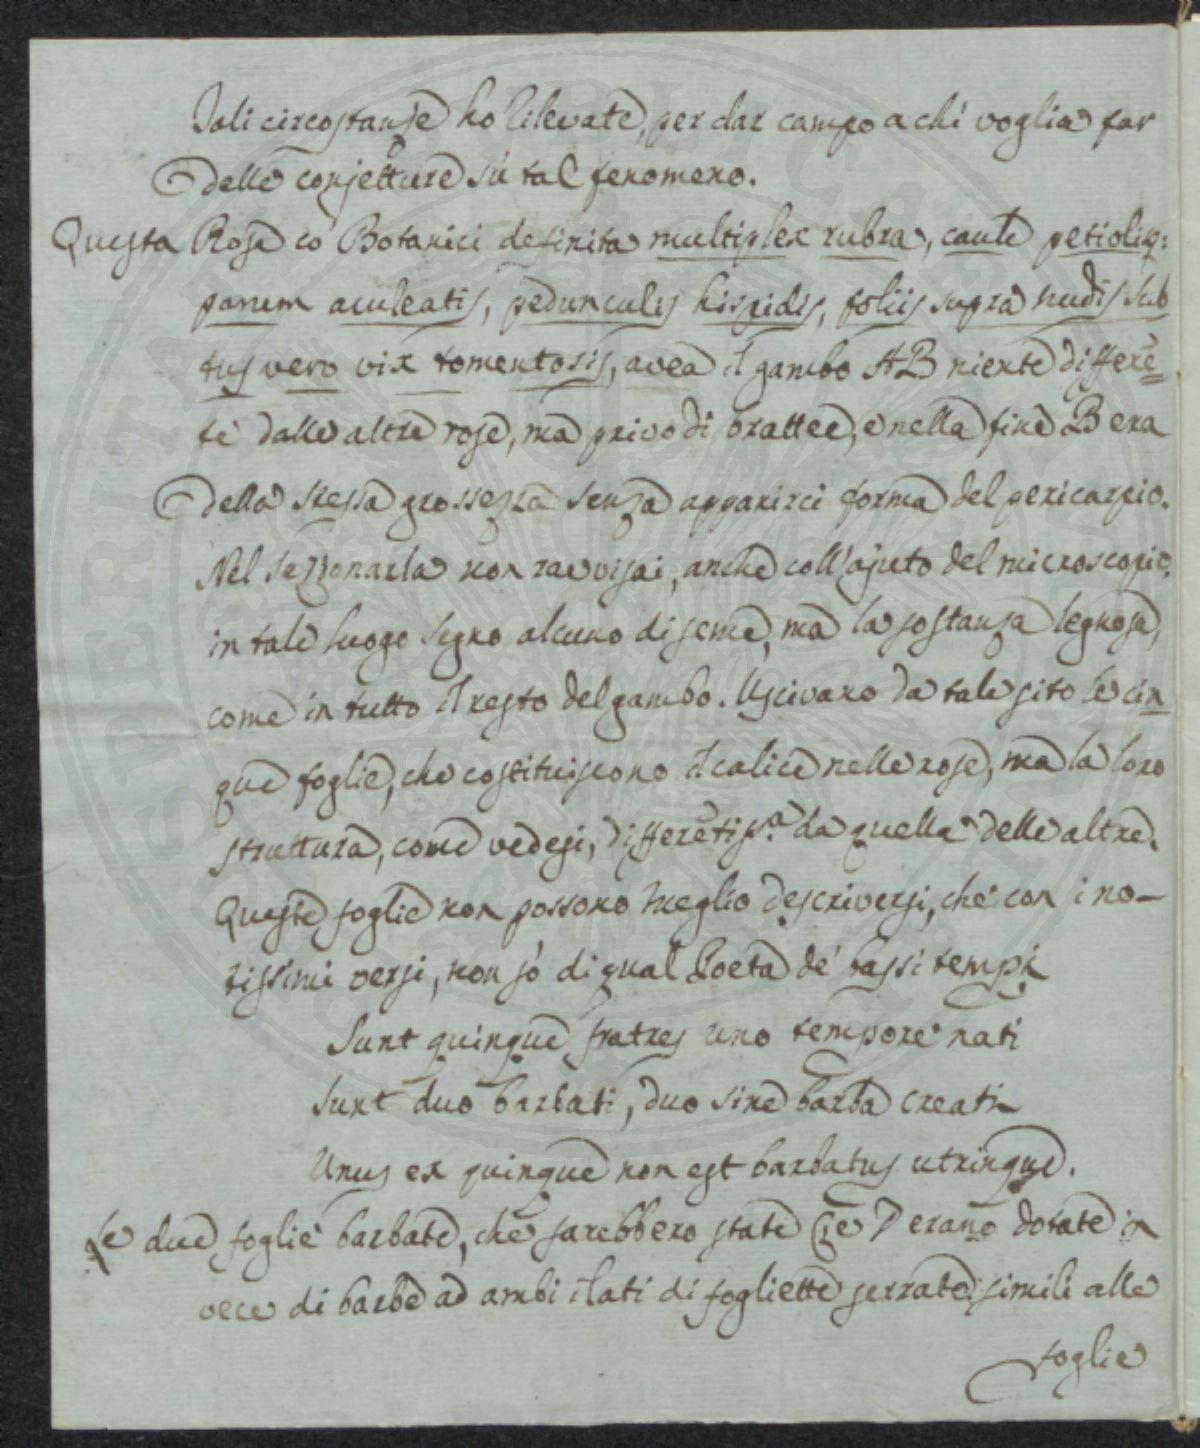 Tali circostanze ho rilevate, per dar campo a chi voglia far
delle conjetture sù tal fenomeno.
Questa Rosa co' Botanici definita multiplex rubra, caule petiolisq:
panum aculeatis, pedunculis hispidis, foliis supra nudis sub
tus vero vix tomentosis, avea il gambo AB niente differē=
te dalle altre rose, ma privo di brattee, e nella fine B era
della stessa grossezza senza apparirci forma del pericarpio.
Nel sezzonarla non ravvisai, anche coll'ajuto del microscopio,
in tale luogo segno alcuno di seme, ma la sostanza legnosa,
come in tutto il resto del gambo. Uscivano da tale sito le cin
que foglie, che costituiscono il calice nelle rose, ma la loro
struttura, come vedesi, differētiss.a da quella delle altre.
Queste foglie non possono meglio descriversi, che con i no-
tissimi versi, non sò di qual Poeta de' bassi tempi
Sunt quinque fratres uno tempore nati
Sunt duo barbati, duo sine barba creati
Unus ex quinque non est barbatus utrinque.
Le due foglie barbate, che sarebbero state C, e D erano dotate in
vece di barbe ad ambi i lati di fogliette serrate simili alle
foglie